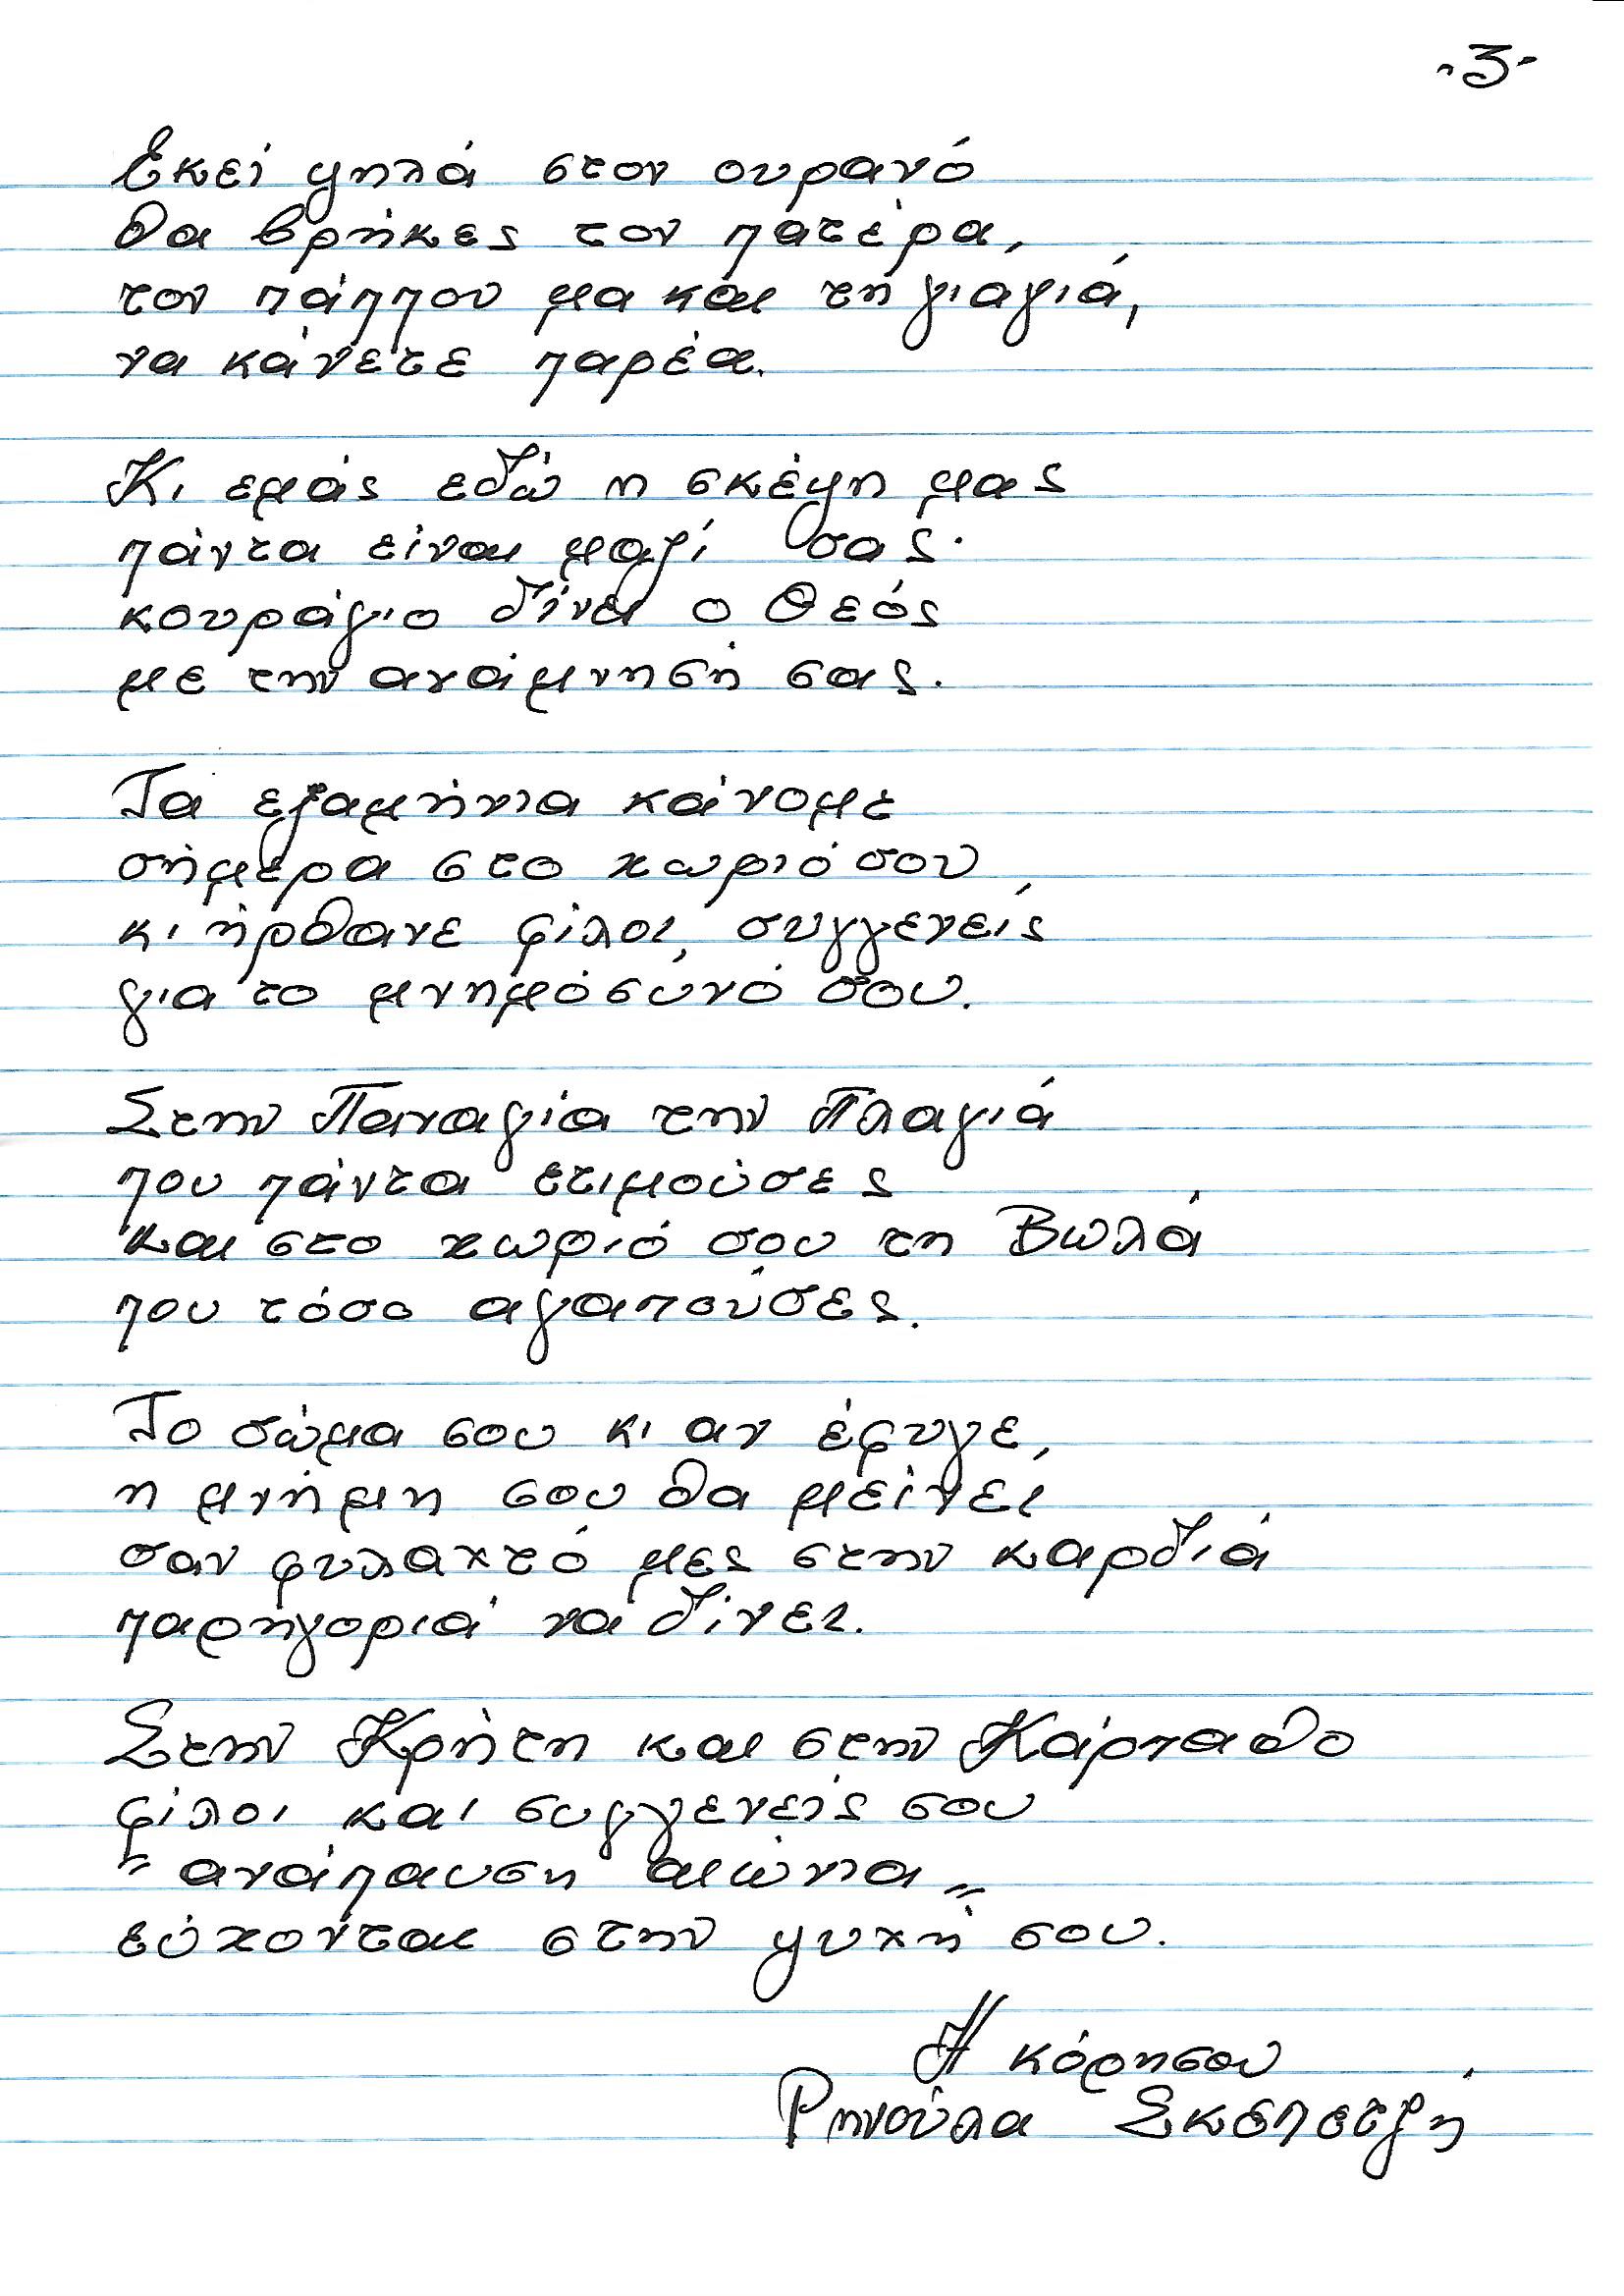 -3-
Εκεί ψηλά στον ουρανό
θα βρήκες τον πατέρα,
τον πάππου μα και τη γιαγιά,
να κάνετε παρέα.
Κι εμάς εδώ η σκέψη μας
πάντα είναι μαζί σας.
κουράγιο δίνει ο Θεός
με την ανάμνησή σας.
Τα εξαμήνια κάνομε
σήμερα στο χωριό σου
κι ήρθανε φίλοι, συγγενείς
για το μνημόσυνό σου.
Στην Παναγία την Πλαγιά
που πάντα ετιμούσες
και στο χωριό σου τη Βωλά
που τόσο αγαπούσες.
Το σώμα σου κι αν έφυγε,
η μνήμη σου θα μείνει
σαν φυλαχτό μες στην καρδιά
παρηγοριά να δίνει.
Στην Κρήτη και στην Κάρπαθο
φίλοι και συγγενείς σου
"ανάπαυση αιώνια"
εύχονται στην ψυχή σου.
Η κόρη σου
Ρηνούλα Σκεπετζή